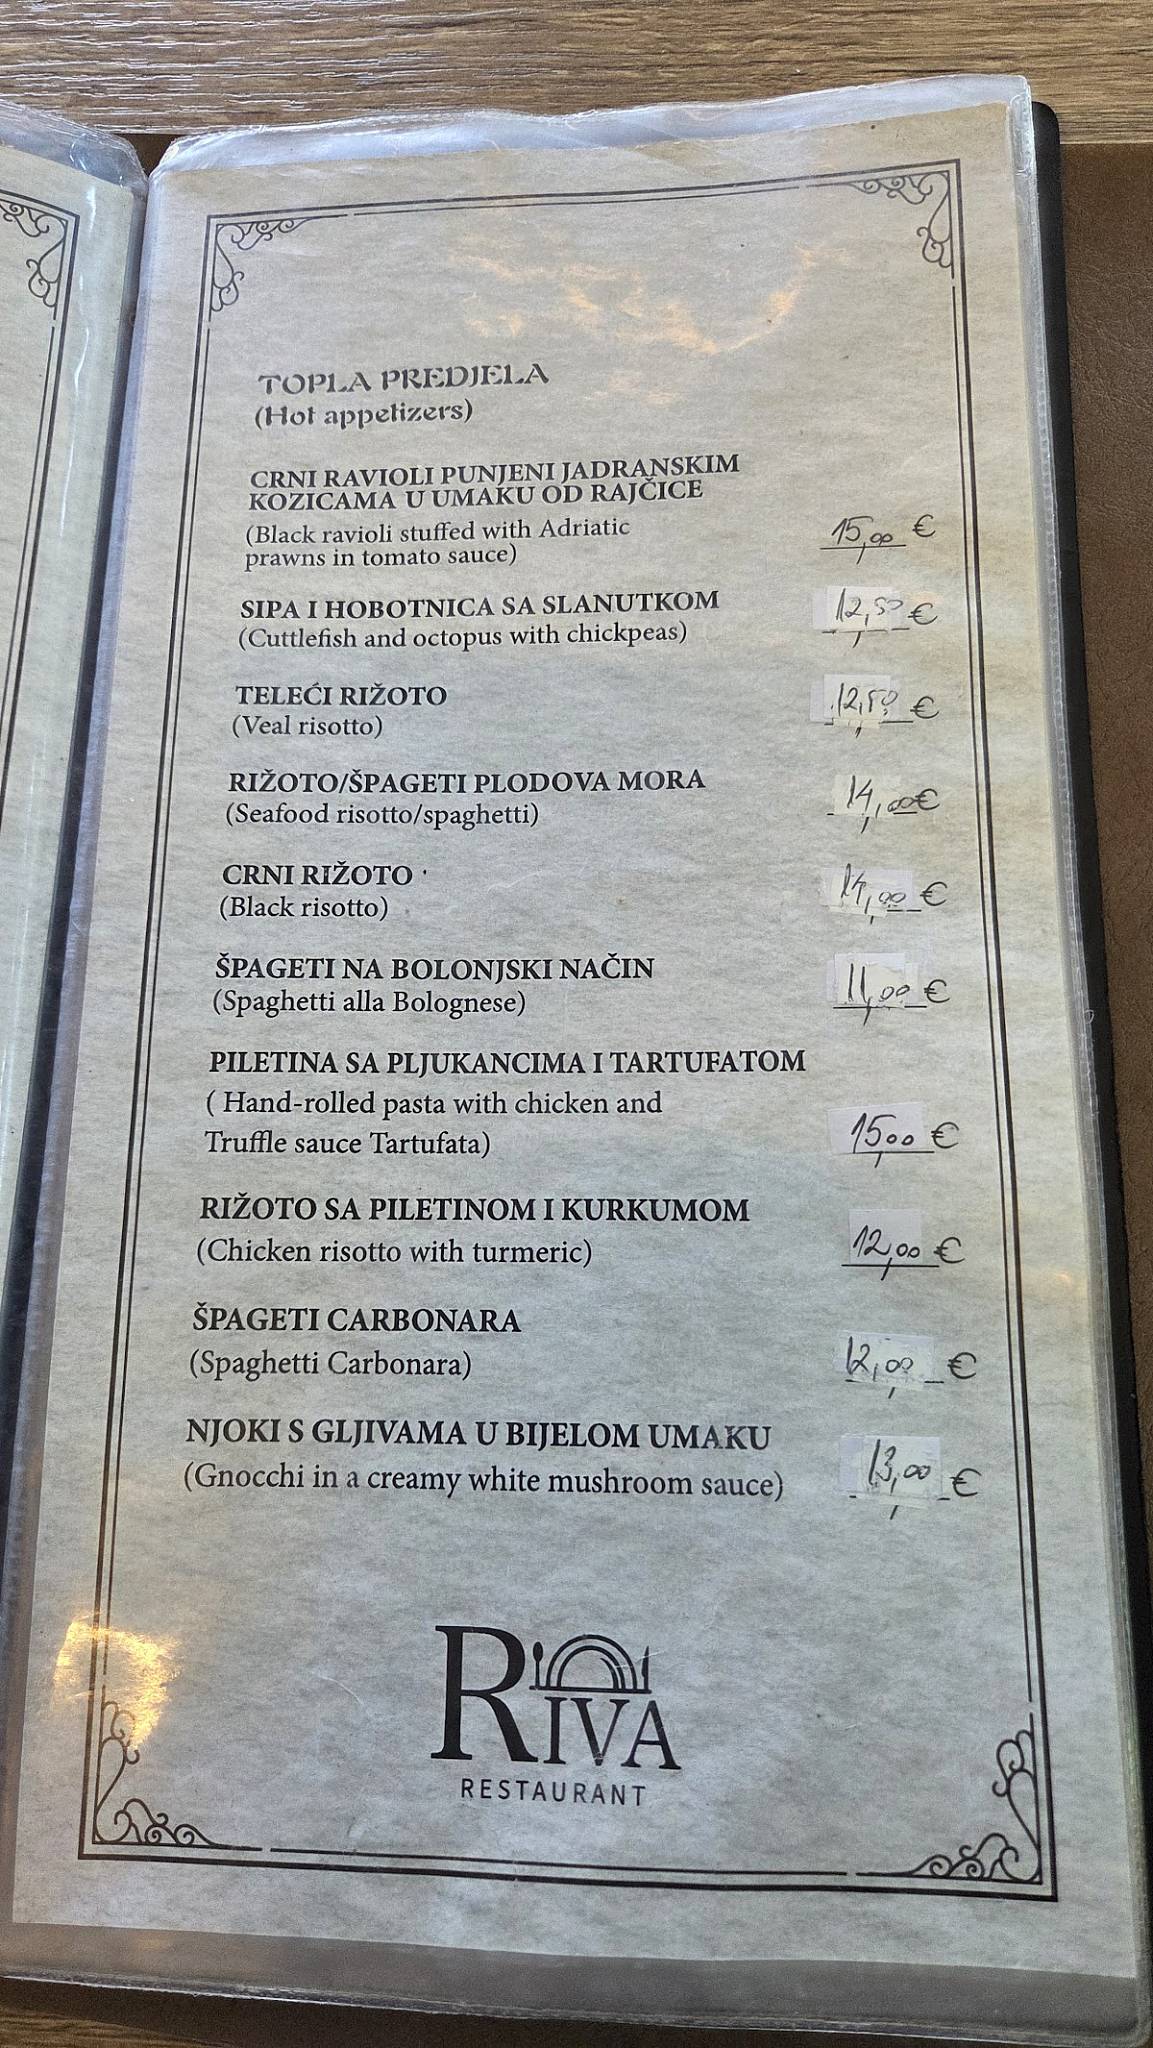 TOPLA PREDJELA
(Hot appetizers)
CRNI RAVIOLI PUNJENI JADRANSKIM
KOZICAMA U UMAKU OD RAJČICE
(Black ravioli stuffed with Adriatic
prawns in tomato sauce) 15,00 €
SIPA I HOBOTNICA SA SLANUTKOM
(Cuttlefish and octopus with chickpeas) 12,50 €
TELEĆI RIŽOTO
(Veal risotto) 12,50 €
RIŽOTO/ŠPAGETI PLODOVA MORA
(Seafood risotto/spaghetti) 14,00 €
CRNI RIŽOTO
(Black risotto) 14,00 €
ŠPAGETI NA BOLONJSKI NAČIN
(Spaghetti alla Bolognese) 11,00 €
PILETINA SA PLJUKANCIMA I TARTUFATOM
( Hand-rolled pasta with chicken and
Truffle sauce Tartufata) 15,00 €
RIŽOTO SA PILETINOM I KURKUMOM
(Chicken risotto with turmeric) 12,00 €
ŠPAGETI CARBONARA
(Spaghetti Carbonara) 12,00 €
NJOKI S GLJIVAMA U BIJELOM UMAKU
(Gnocchi in a creamy white mushroom sauce) 13,00 €
RIVA
RESTAURANT